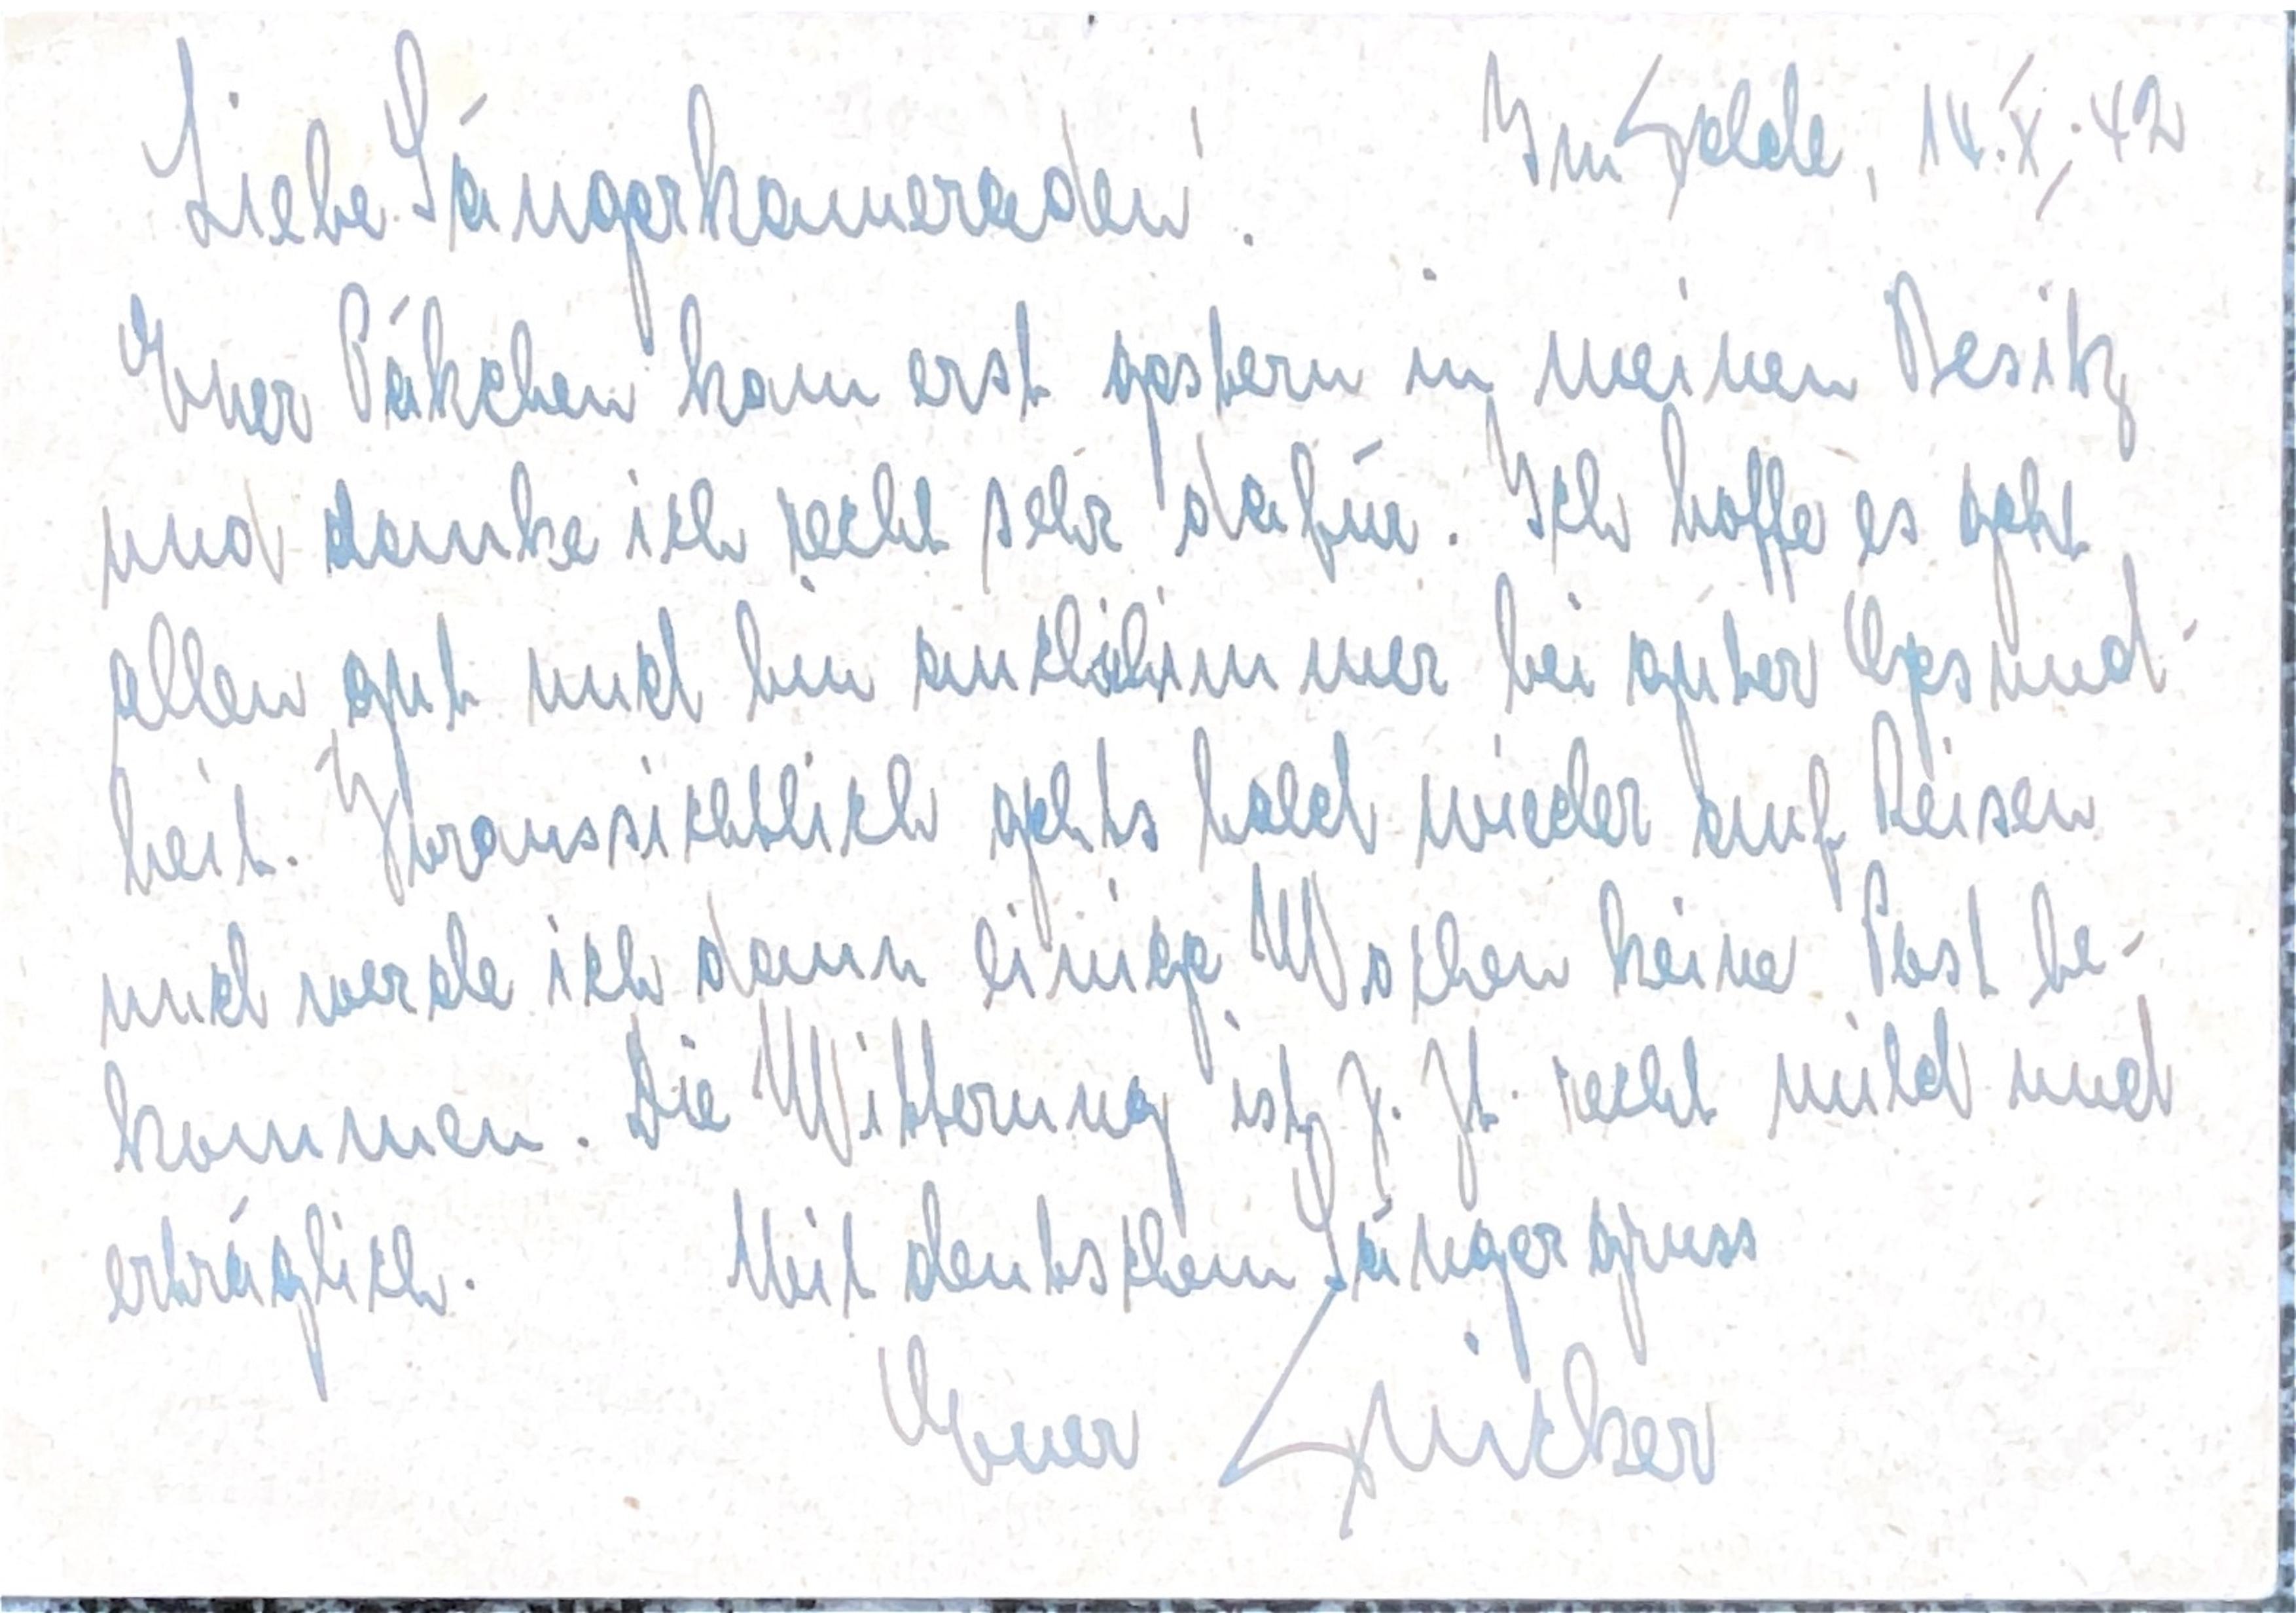 Im Felde, 14.X.42
Liebe Sängerkameraden!
Euer Päkchen kam erst gestern in meinen Besitz
und danke ich recht sehr dafür. Ich hoffe es geht
allen gut und bin auch immer bei guter Gesund-
heit. Voraussichtlich gehts bald wieder auf Reisen
und werde ich dann einige Wochen keine Post be-
kommen. Die Witterung ist z. Zt. recht mild und
erträglich. Mit deutschem Sängergruss
Euer